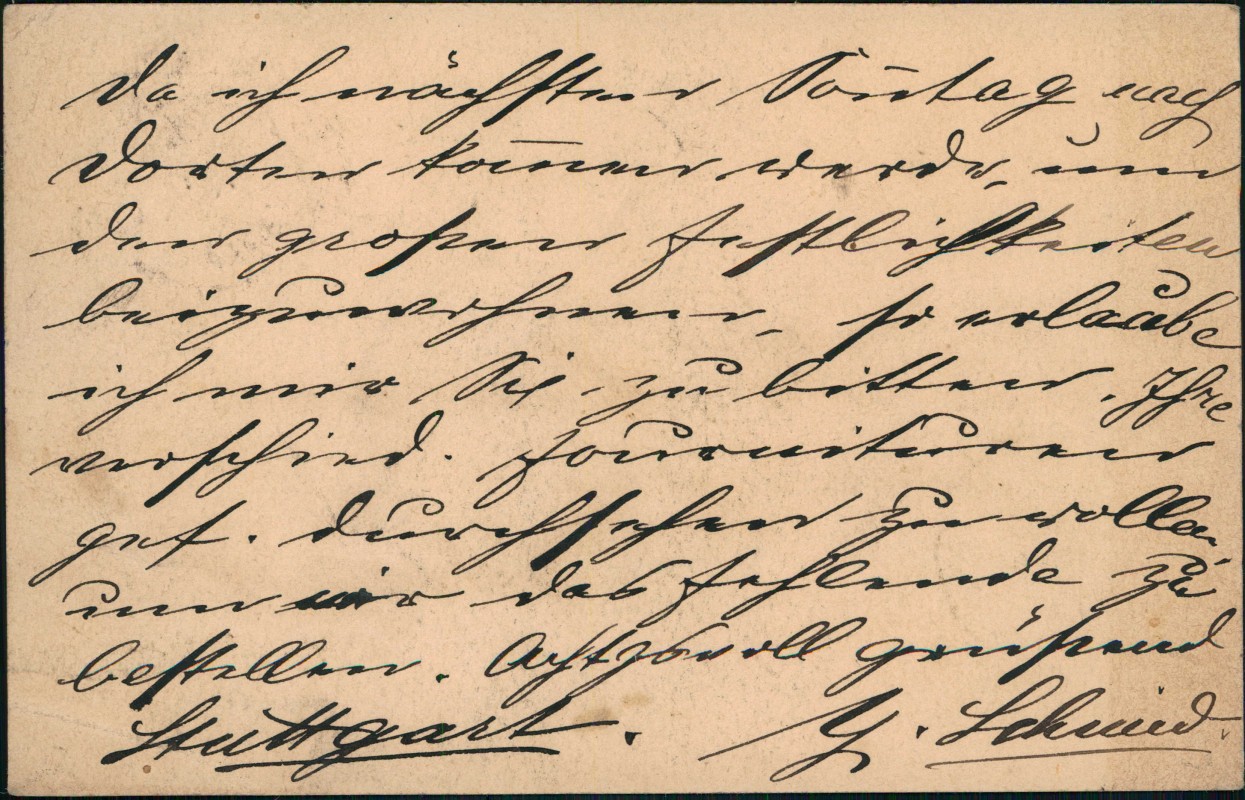 Da ich nächsten Son̄tag nach
dorten kom̄en werde, um
den großen Festlichkeiten
beizuwohnen, so erlaube
ich mir Sie zu bitten, Ihre
verschied. Fournituren
gef. durchsehen zu wollen,
um mir das fehlende zu
bestellen. Achtgsvoll grüßend
Stuttgart. G. Schmid.